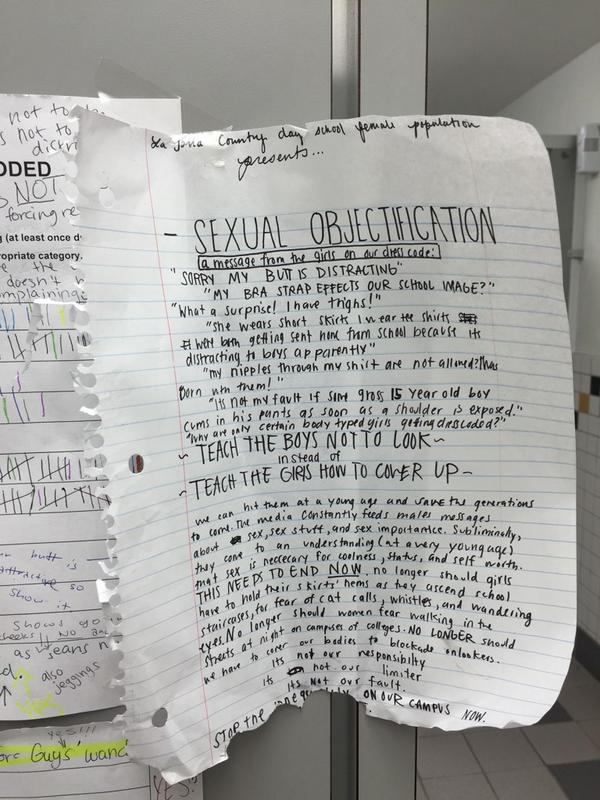 La Jolla Country day school female population
presents...
- SEXUAL OBJECTIFICATION
a message from the girls on our dress code:
"SORRY MY BUTT IS DISTRACTING"
"MY BRA STRAP EFFECTS OUR SCHOOL IMAGE?"
"What a surprise! I have thighs!"
"she wears short skirts I wear tee shirts
I went both getting sent home from school because its
distracting to boys apparently"
"my nipples through my shirt are not allowed? I was
Born with them!"
"Its not my fault if some gross 15 year old boy
cums in his pants as soon as a shoulder is exposed."
"Why are only certain body typed girls getting dresscoded?"
~ TEACH THE BOYS NOT TO LOOK ~
instead of
~ TEACH THE GIRLS HOW TO COVER UP ~
we can hit them at a young age and save the generations
to come. The media constantly feeds males messages
about sex, sex stuff, and sex importance. Subliminally,
they come to an understanding (at a very young age)
that sex is neccecary for coolness, status, and self worth.
THIS NEEDS TO END NOW. no longer should girls
have to hold their skirts' hems as they ascend school
staircases, for fear of cat calls, whistles, and wandering
eyes. No longer should women fear walking in the
streets at night on campuses of colleges. NO LONGER should
we have to cover our bodies to blockade onlookers.
Its not our responsibilty
Its not our limiter
its not our fault.
STOP the ON OUR CAMPUS NOW.
not to
s not to
distri
ODED
NOT
forcing re
g (at least once d
ropriate category.
the
doesn't
mplaining
butt is
so
show it
shows
as jeans
also
jeggings
yes!!!
or Guys' wand
YES!